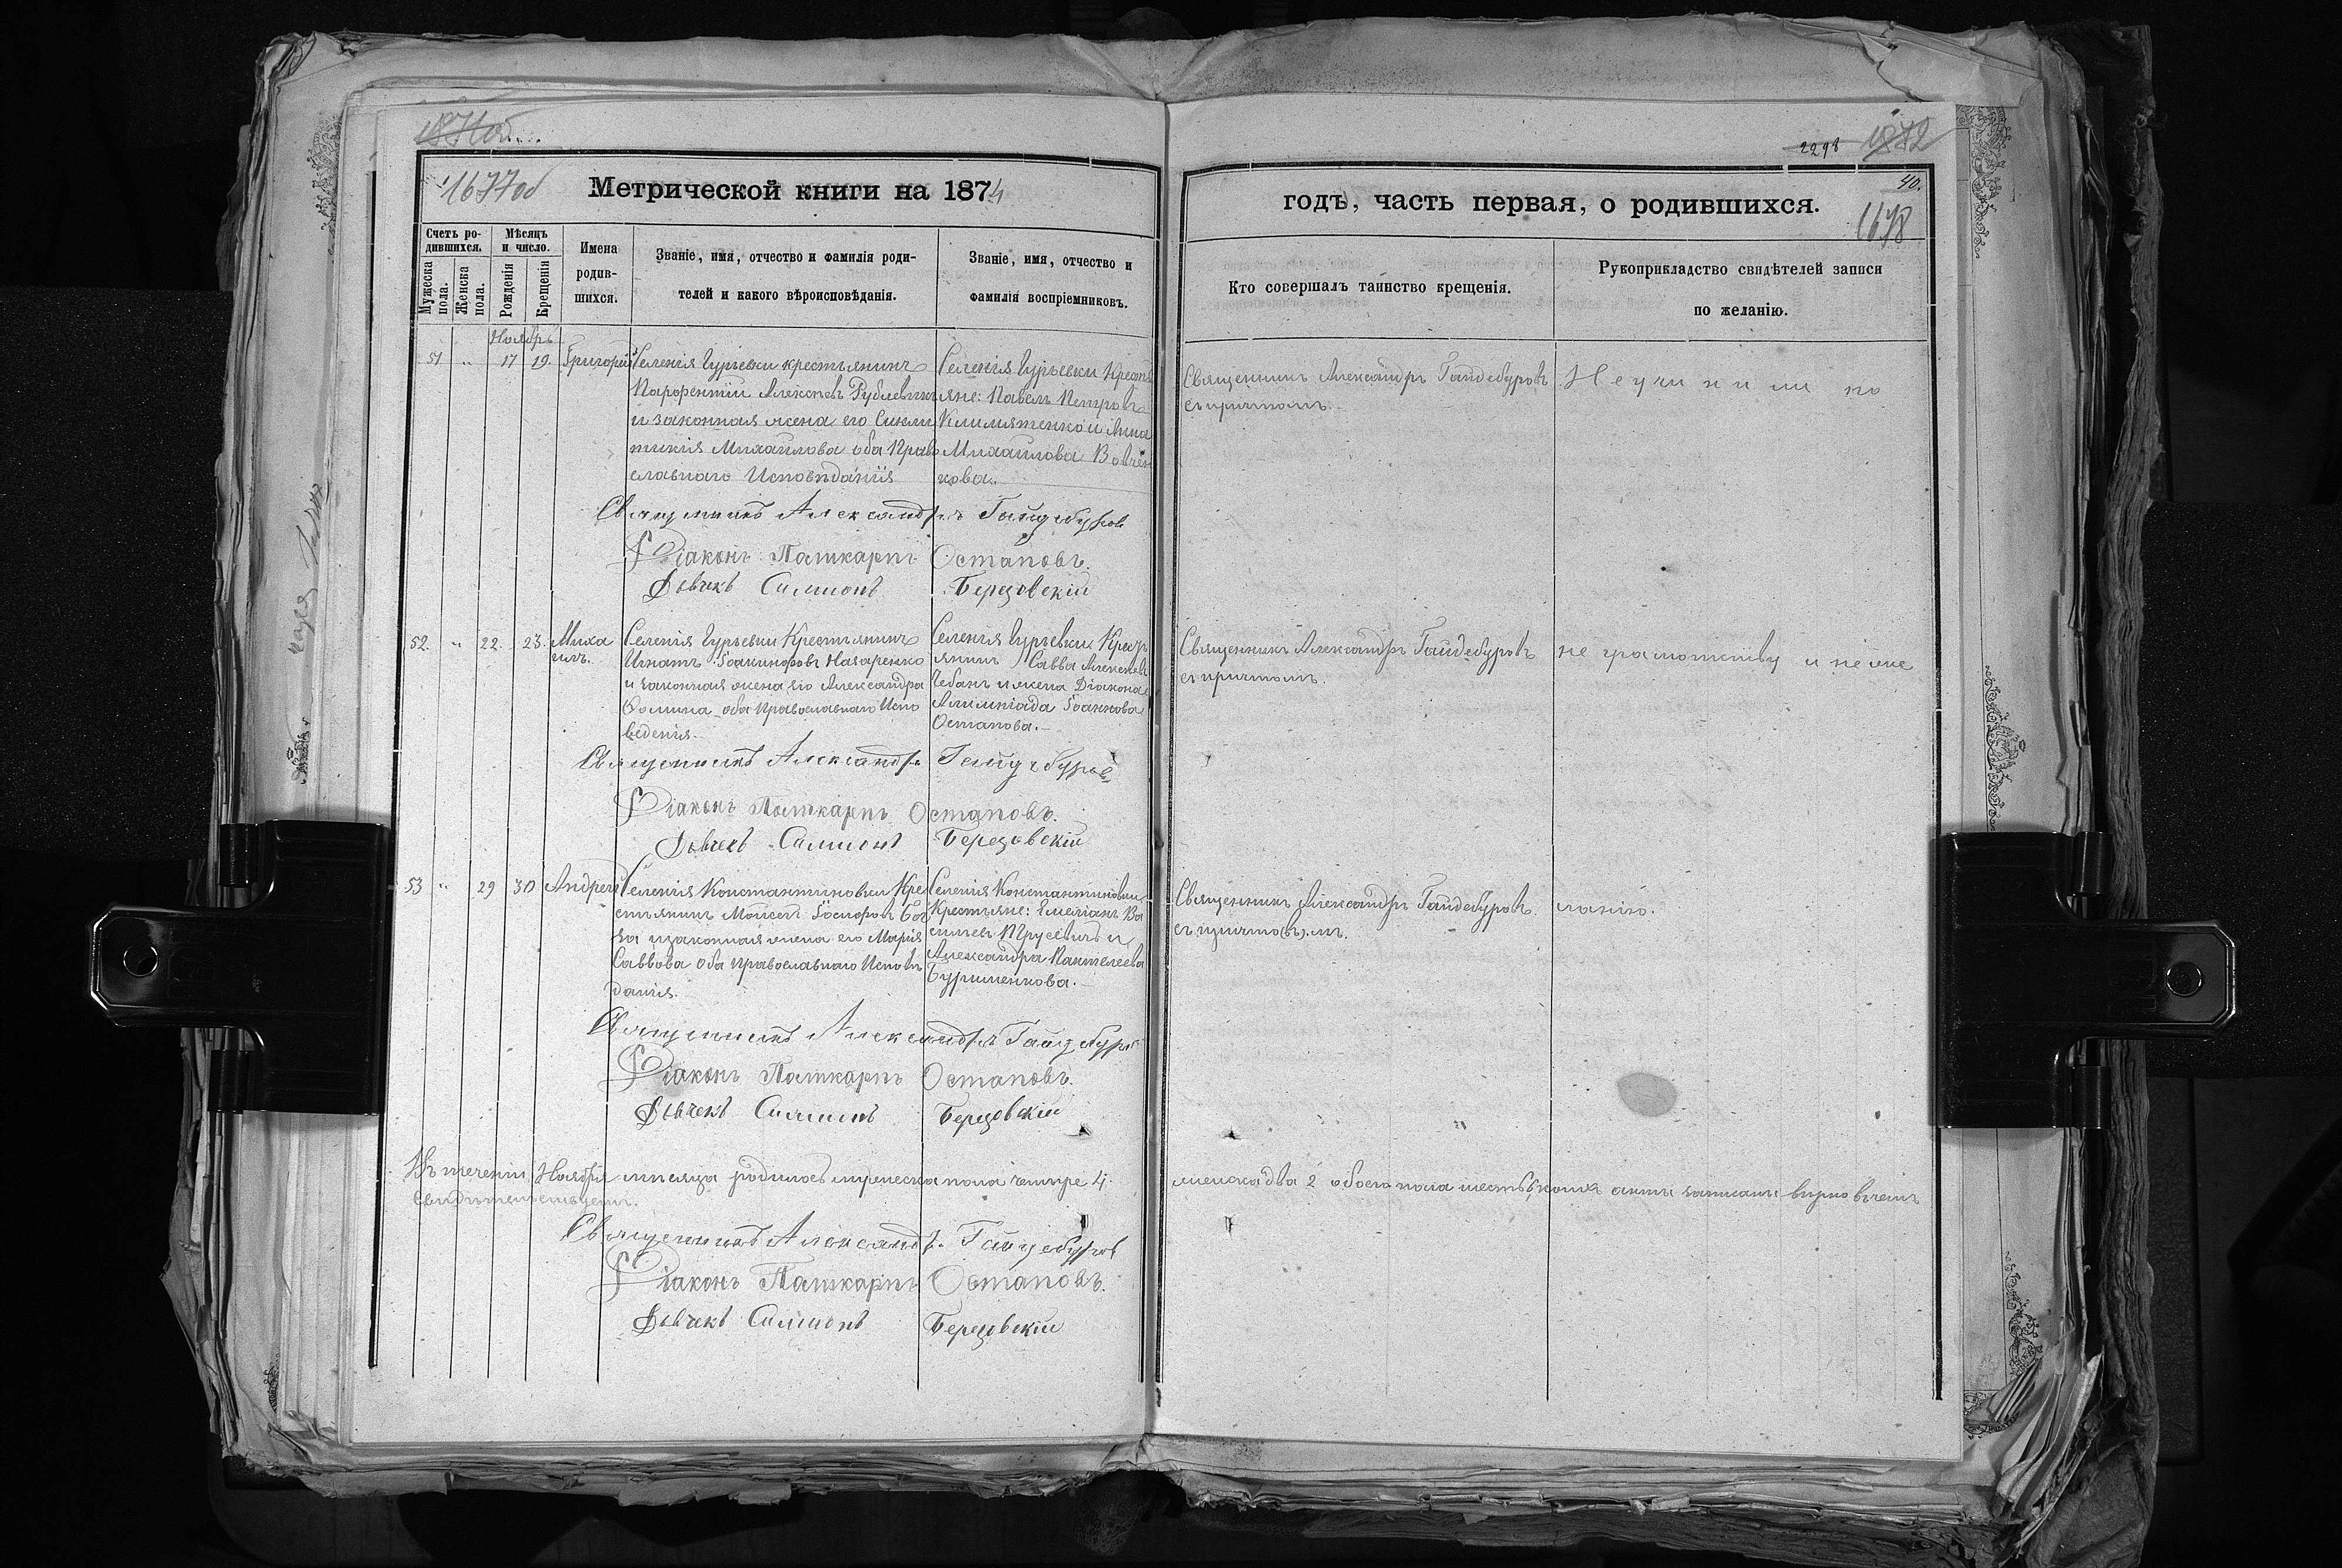 1871об.
1677об
Метрической книги на 1874
Счетъ ро-
дившихся.
Мѣсяцъ
и число.
Мужеска
пола.
Женска
пола.
Рожденія
Крещенія
Имена
родив-
шихся.
Званіе, имя, отчество и фамилія роди-
телей и какого вѣроисповѣданія.
Званіе, имя, отчество и
фамилія воспріемниковъ.
Ноябрь
51 " 17 19. Григорій
Селенія Гурьевки крестьянинъ
Парфентій Алексѣевъ
и законная жена его Синкли
тикія Михаилова оба Право
славнаго Исповѣданія
Селенія Гурьевки Кресть
яне: Павелъ Петровъ
Климятенко и Анна
Михаилова Вовчен
кова.
Священникъ Александръ Гайдебуровъ
Діаконъ Поликарпъ Остаповъ.
Дьячекъ Симеонъ Березовскій
52. " 22. 23. Миха
илъ.
Селенія Гурьевки Крестьянинъ
Игнатъ Іоакинфовъ Назаренко
и законная жена его Александра
Фомина оба Православнаго Испо
веденія.
Селенія Гурьевки Кресть
янинъ Савва Алексѣевъ
Чебанъ и жена Діакона
Олимпіада Іоаннова
Остапова.
Священникъ Александръ Гайдебуровъ
Діаконъ Поликарпъ Остаповъ.
Дьячекъ Симеонъ Березовскій
53 " 29 30 Андрей
Селенія Константиновки Кре
стьянинъ Моисей Іосифовъ
за и законная жена его Марія
Саввова оба православнаго Исповѣ
данія.
Селенія Константиновки
Крестьяне: Емеліанъ Ва
сильевъ и
Александра Пантелеева
Бурименкова.
Священникъ Александръ Гайдебуровъ
Діаконъ Поликарпъ Остаповъ.
Дьячекъ Симеонъ Березовскій
Въ теченіи Ноября мѣсяца родилось мужеска пола четыре 4.
свидѣтельствуемъ.
Священникъ Александръ Гайдебуровъ
Діаконъ Поликарпъ Остаповъ.
Дьячекъ Симеонъ Березовскій
2298 1872
40.
1678
годъ, часть первая, о родившихся.
Кто совершалъ таинство крещенія.
Рукоприкладство свидѣтелей записи
по желанію.
Священникъ Александръ Гайдебуровъ
съ причтомъ.
Неучинили по
Священникъ Александръ Гайдебуровъ
съ причтомъ.
не грамотству и неже
Священникъ Александръ Гайдебуровъ.
съ причтомъ.
ланію.
женска два 2 обоего пола шесть 6, коихъ акты записаны вѣрно въ чемъ